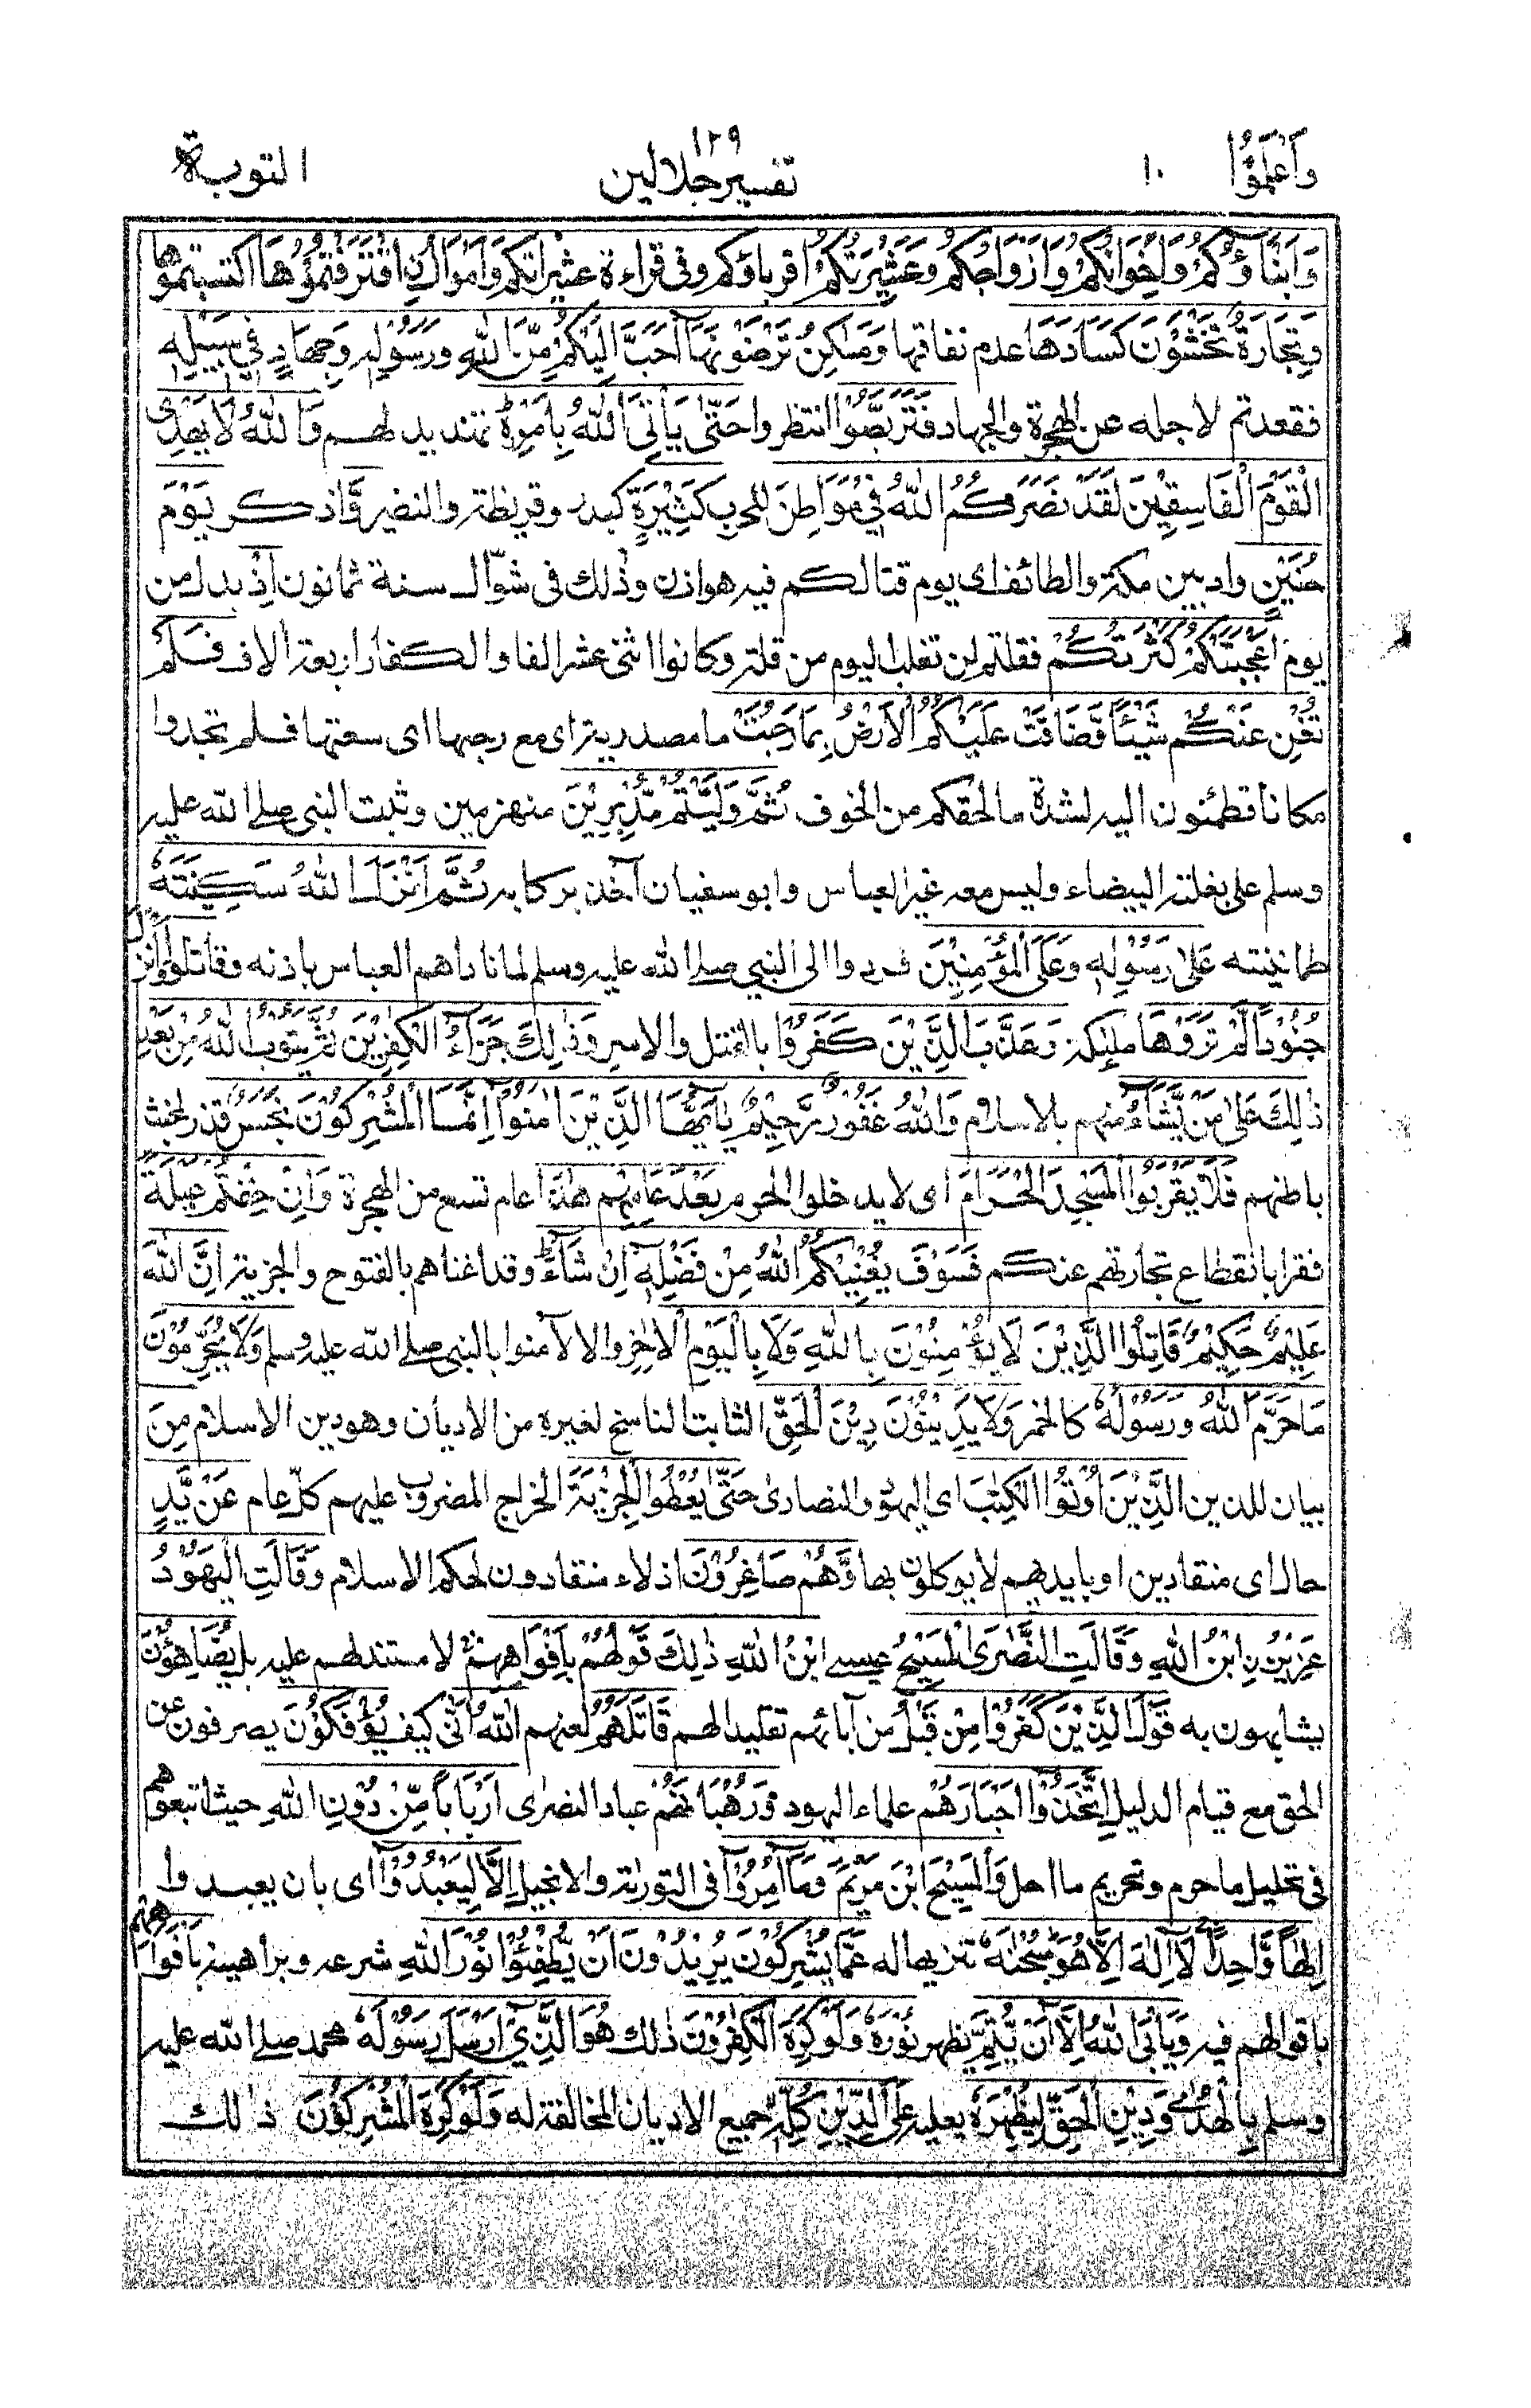 ١٢٩
وَاعْلَمُوْا ١٠ تفسير جلالين التوبة
وَاَبْنَآؤُكُمْ وَاِخْوَانُكُمْ وَاَزْوَاجُكُمْ وَعَشِيْرَتُكُمْ اقرباؤكم وفى قراءة عشيراتكم وَاَمْوَالُ نِ اقْتَرَفْتُمُوْهَا اكتسبتموها
وَتِجَارَةٌ تَخْشَوْنَ كَسَادَهَا عدم نفاقها وَمَسٰكِنُ تَرْضَوْنَهَآ اَحَبَّ اِلَيْكُمْ مِّنَ اللّٰهِ وَرَسُوْلِهٖ وَجِهَادٍ فِيْ سَبِيْلِهٖ
فقعدتم لاجله عن الهجرة والجهاد فَتَرَبَّصُوْا انتظروا حَتّٰى يَأْتِيَ اللّٰهُ بِاَمْرِهٖ تهديد لهم وَاللّٰهُ لَا يَهْدِى
الْقَوْمَ الْفَاسِقِيْنَ لَقَدْ نَصَرَكُمُ اللّٰهُ فِيْ مَوَاطِنَ للحرب كَثِيْرَةٍ كبدر وقريظة والنضير وَّاذكر يَوْمَ
حُنَيْنٍ واد بين مكة والطائف اى يوم قتالكم فيه هوازن وذلك فى شوّال سنة ثمانون اِذْ بدل من
يوم اَعْجَبَتْكُمْ كَثْرَتُكُمْ فقلتم لن تغلب اليوم من قلة وكانوا اثنى عشر الفا والكفار اربعة الاف فَلَمْ
تُغْنِ عَنْكُمْ شَيْئًا وَّضَاقَتْ عَلَيْكُمُ الْاَرْضُ بِمَا رَحُبَتْ ما مصدرية اى مع رحبها اى سعتها فلم تجدوا
مكانا تطمئنون اليه لشدة ما لحقكم من الخوف ثُمَّ وَلَّيْتُمْ مُّدْبِرِيْنَ منهزمين وثبت النبى صلے الله عليه
وسلم على بغلته البيضاء وليس معه غير العباس وابو سفيان آخذ بركابه ثُمَّ اَنْزَلَ اللّٰهُ سَكِيْنَتَهٗ
طمانينته عَلٰى رَسُوْلِهٖ وَعَلَى الْمُؤْمِنِيْنَ فردوا الى النبي صلے الله عليه وسلم لما ناداهم العباس باذنه وقاتلوا وَاَنْزَلَ
جُنُوْدًا لَّمْ تَرَوْهَا ملٰئكة وَعَذَّبَ الَّذِيْنَ كَفَرُوْا بالقتل والاسر وَذٰلِكَ جَزَآءُ الْكٰفِرِيْنَ ثُمَّ يَتُوْبُ اللّٰهُ مِنْ بَعْدِ
ذٰلِكَ عَلٰى مَنْ يَّشَآءُ منهم بالاسلام وَاللّٰهُ غَفُوْرٌ رَّحِيْمٌ يٰٓاَيُّهَا الَّذِيْنَ اٰمَنُوْٓا اِنَّمَا الْمُشْرِكُوْنَ نَجَسٌ قذر لخبث
باطنهم فَلَا يَقْرَبُوا الْمَسْجِدَ الْحَرَامَ اى لا يدخلوا الحرم بَعْدَ عَامِهِمْ هٰذَا عام تسع من الهجرة وَاِنْ خِفْتُمْ عَيْلَةً
فقرا بانقطاع تجارتهم عنكم فَسَوْفَ يُغْنِيْكُمُ اللّٰهُ مِنْ فَضْلِهٖٓ اِنْ شَآءَ وقد اغناهم بالفتوح والجزية اِنَّ اللّٰهَ
عَلِيْمٌ حَكِيْمٌ قَاتِلُوا الَّذِيْنَ لَا يُؤْمِنُوْنَ بِاللّٰهِ وَلَا بِالْيَوْمِ الْاٰخِرِ والا لآمنوا بالنبى صلے الله عليه وسلم وَلَا يُحَرِّمُوْنَ
مَا حَرَّمَ اللّٰهُ وَرَسُوْلُهٗ كالخمر وَلَا يَدِيْنُوْنَ دِيْنَ الْحَقِّ الثابت الناسخ لغيره من الاديان وهو دين الاسلام مِنَ
بيان للذين الَّذِيْنَ اُوْتُوا الْكِتٰبَ اى اليهود والنصارىٰ حَتّٰى يُعْطُوا الْجِزْيَةَ الخراج المضروب عليهم كل عام عَنْ يَّدٍ
حال اى منقادين او بايديهم لا يوكلون بها وَّهُمْ صَاغِرُوْنَ اذلاء منقادون لحكم الاسلام وَقَالَتِ الْيَهُوْدُ
عُزَيْرُ نِ ابْنُ اللّٰهِ وَقَالَتِ النَّصٰرَى الْمَسِيْحُ عيسے ابْنُ اللّٰهِ ذٰلِكَ قَوْلُهُمْ بِاَفْوَاهِهِمْ لا مستند لهم عليه بل يُضَاهِؤُنَ
يشابهون به قَوْلَ الَّذِيْنَ كَفَرُوْا مِنْ قَبْلُ من آبائهم تقليدا لهم قَاتَلَهُمُ لعنهم اللّٰهُ اَنّٰى كيف يُؤْفَكُوْنَ يصرفون عن
الحق مع قيام الدليل اِتَّخَذُوْٓا اَحْبَارَهُمْ علماء اليهود وَرُهْبَانَهُمْ عباد النصرٰى اَرْبَابًا مِّنْ دُوْنِ اللّٰهِ حيث اتبعوهم
فى تحليل ما حرم وتحريم ما احل وَالْمَسِيْحَ ابْنَ مَرْيَمَ وَمَآ اُمِرُوْٓا فى التورىٰة والانجيل اِلَّا لِيَعْبُدُوْٓا اى بان يعبدوا
اِلٰهًا وَّاحِدًا لَآ اِلٰهَ اِلَّا هُوَ سُبْحٰنَهٗ تنزيها له عَمَّا يُشْرِكُوْنَ يُرِيْدُوْنَ اَنْ يُّطْفِئُوْا نُوْرَ اللّٰهِ شرعه وبراهينه بِاَفْوَاهِهِمْ
باقوالهم فيه وَيَأْبَى اللّٰهُ اِلَّآ اَنْ يُّتِمَّ يظهر نُوْرَهٗ وَلَوْ كَرِهَ الْكٰفِرُوْنَ ذلك هُوَ الَّذِيْٓ اَرْسَلَ رَسُوْلَهٗ محمد صلے الله عليه
وسلم بِالْهُدٰى وَدِيْنِ الْحَقِّ لِيُظْهِرَهٗ يعليه عَلَى الدِّيْنِ كُلِّهٖ جميع الاديان المخالفة له وَلَوْ كَرِهَ الْمُشْرِكُوْنَ ذٰلك